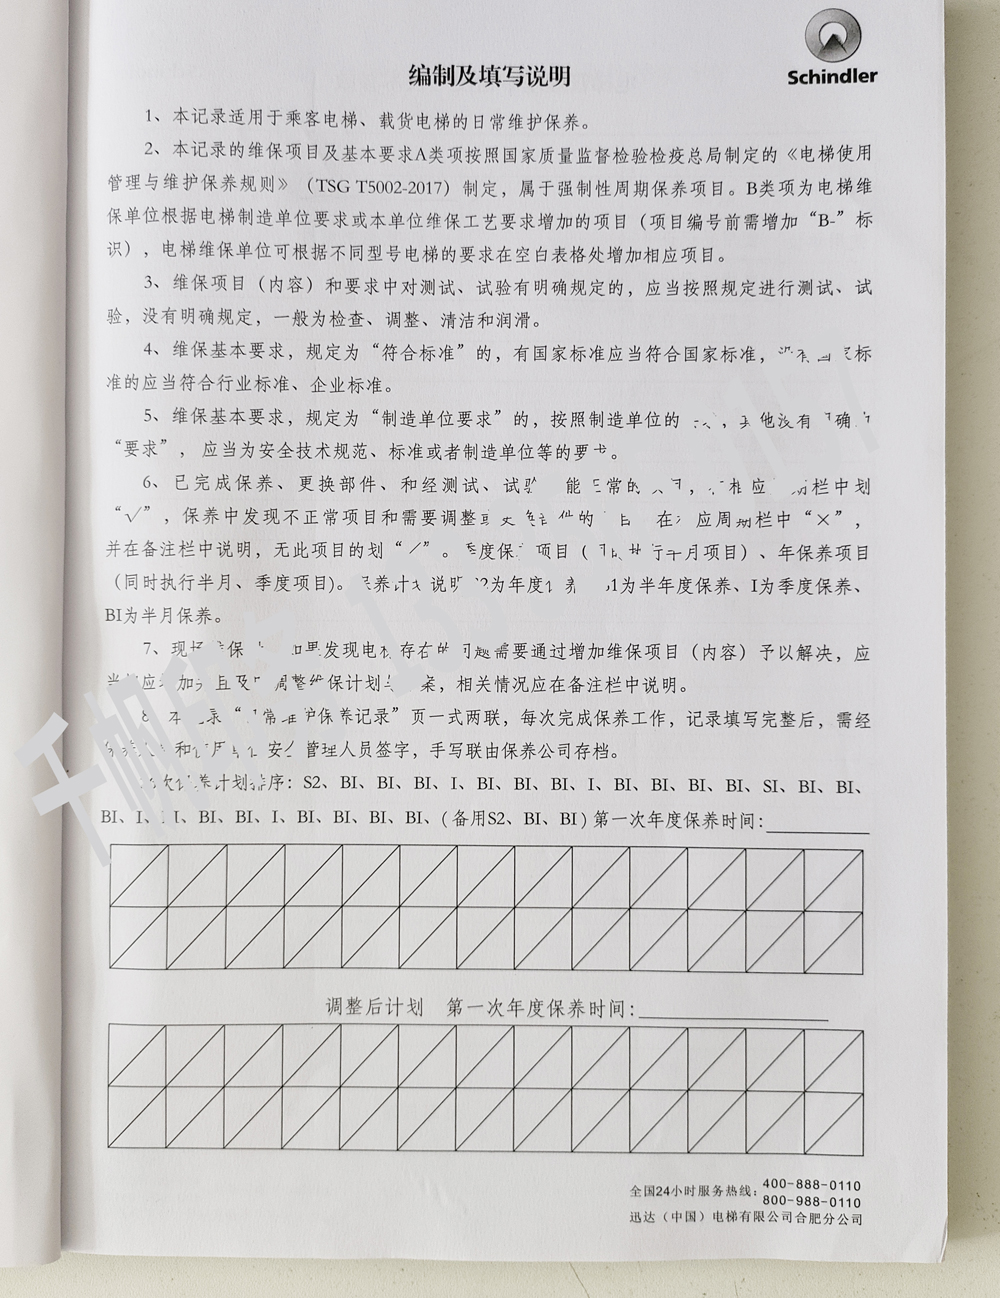 Schindler
编制及填写说明
1、本记录适用于乘客电梯、载货电梯的日常维护保养。
2、本记录的维保项目及基本要求A类项按照国家质量监督检验检疫总局制定的《电梯使用
管理与维护保养规则》（TSG T5002-2017）制定，属于强制性周期保养项目。B类项为电梯维
保单位根据电梯制造单位要求或本单位维保工艺要求增加的项目（项目编号前需增加“B-”标
识），电梯维保单位可根据不同型号电梯的要求在空白表格处增加相应项目。
3、维保项目（内容）和要求中对测试、试验有明确规定的，应当按照规定进行测试、试
验，没有明确规定，一般为检查、调整、清洁和润滑。
4、维保基本要求，规定为“符合标准”的，有国家标准应当符合国家标准，标
准的应当符合行业标准、企业标准。
5、维保基本要求，规定为“制造单位要求”的，按照制造单位的 他没有 确
“要求”，应当为安全技术规范、标准或者制造单位等的要求。
6、已完成保养、更换部件、和经测试、试验 能正常的 应 栏中划
“√”，保养中发现不正常项目和需要调整 的 在 应周期栏中“×”，
并在备注栏中说明，无此项目的划“／”。季度保 项目（ 半月项目）、年保养项目
（同时执行半月、季度项目)。保养计划说明 为年度 养 为半年度保养、I为季度保养、
BI为半月保养。
7、现场维保 如果发现电梯存在的问题需要通过增加维保项目（内容）予以解决，应
当 应 加 且及 调整维保计划 案，相关情况应在备注栏中说明。
本记录“日常维护保养记录”页一式两联，每次完成保养工作，记录填写完整后，需经
和 安全管理人员签字，手写联由保养公司存档。
次保养计划排序：S2、BI、BI、BI、I、BI、BI、BI、I、BI、BI、BI、BI、SI、BI、BI、
BI、I、 BI、BI、I、BI、BI、BI、BI、(备用S2、BI、BI）第一次年度保养时间:
调整后计划 第一次年度保养时间:
全国24小时服务热线：400-888-0110
800-988-0110
迅达（中国）电梯有限公司合肥分公司